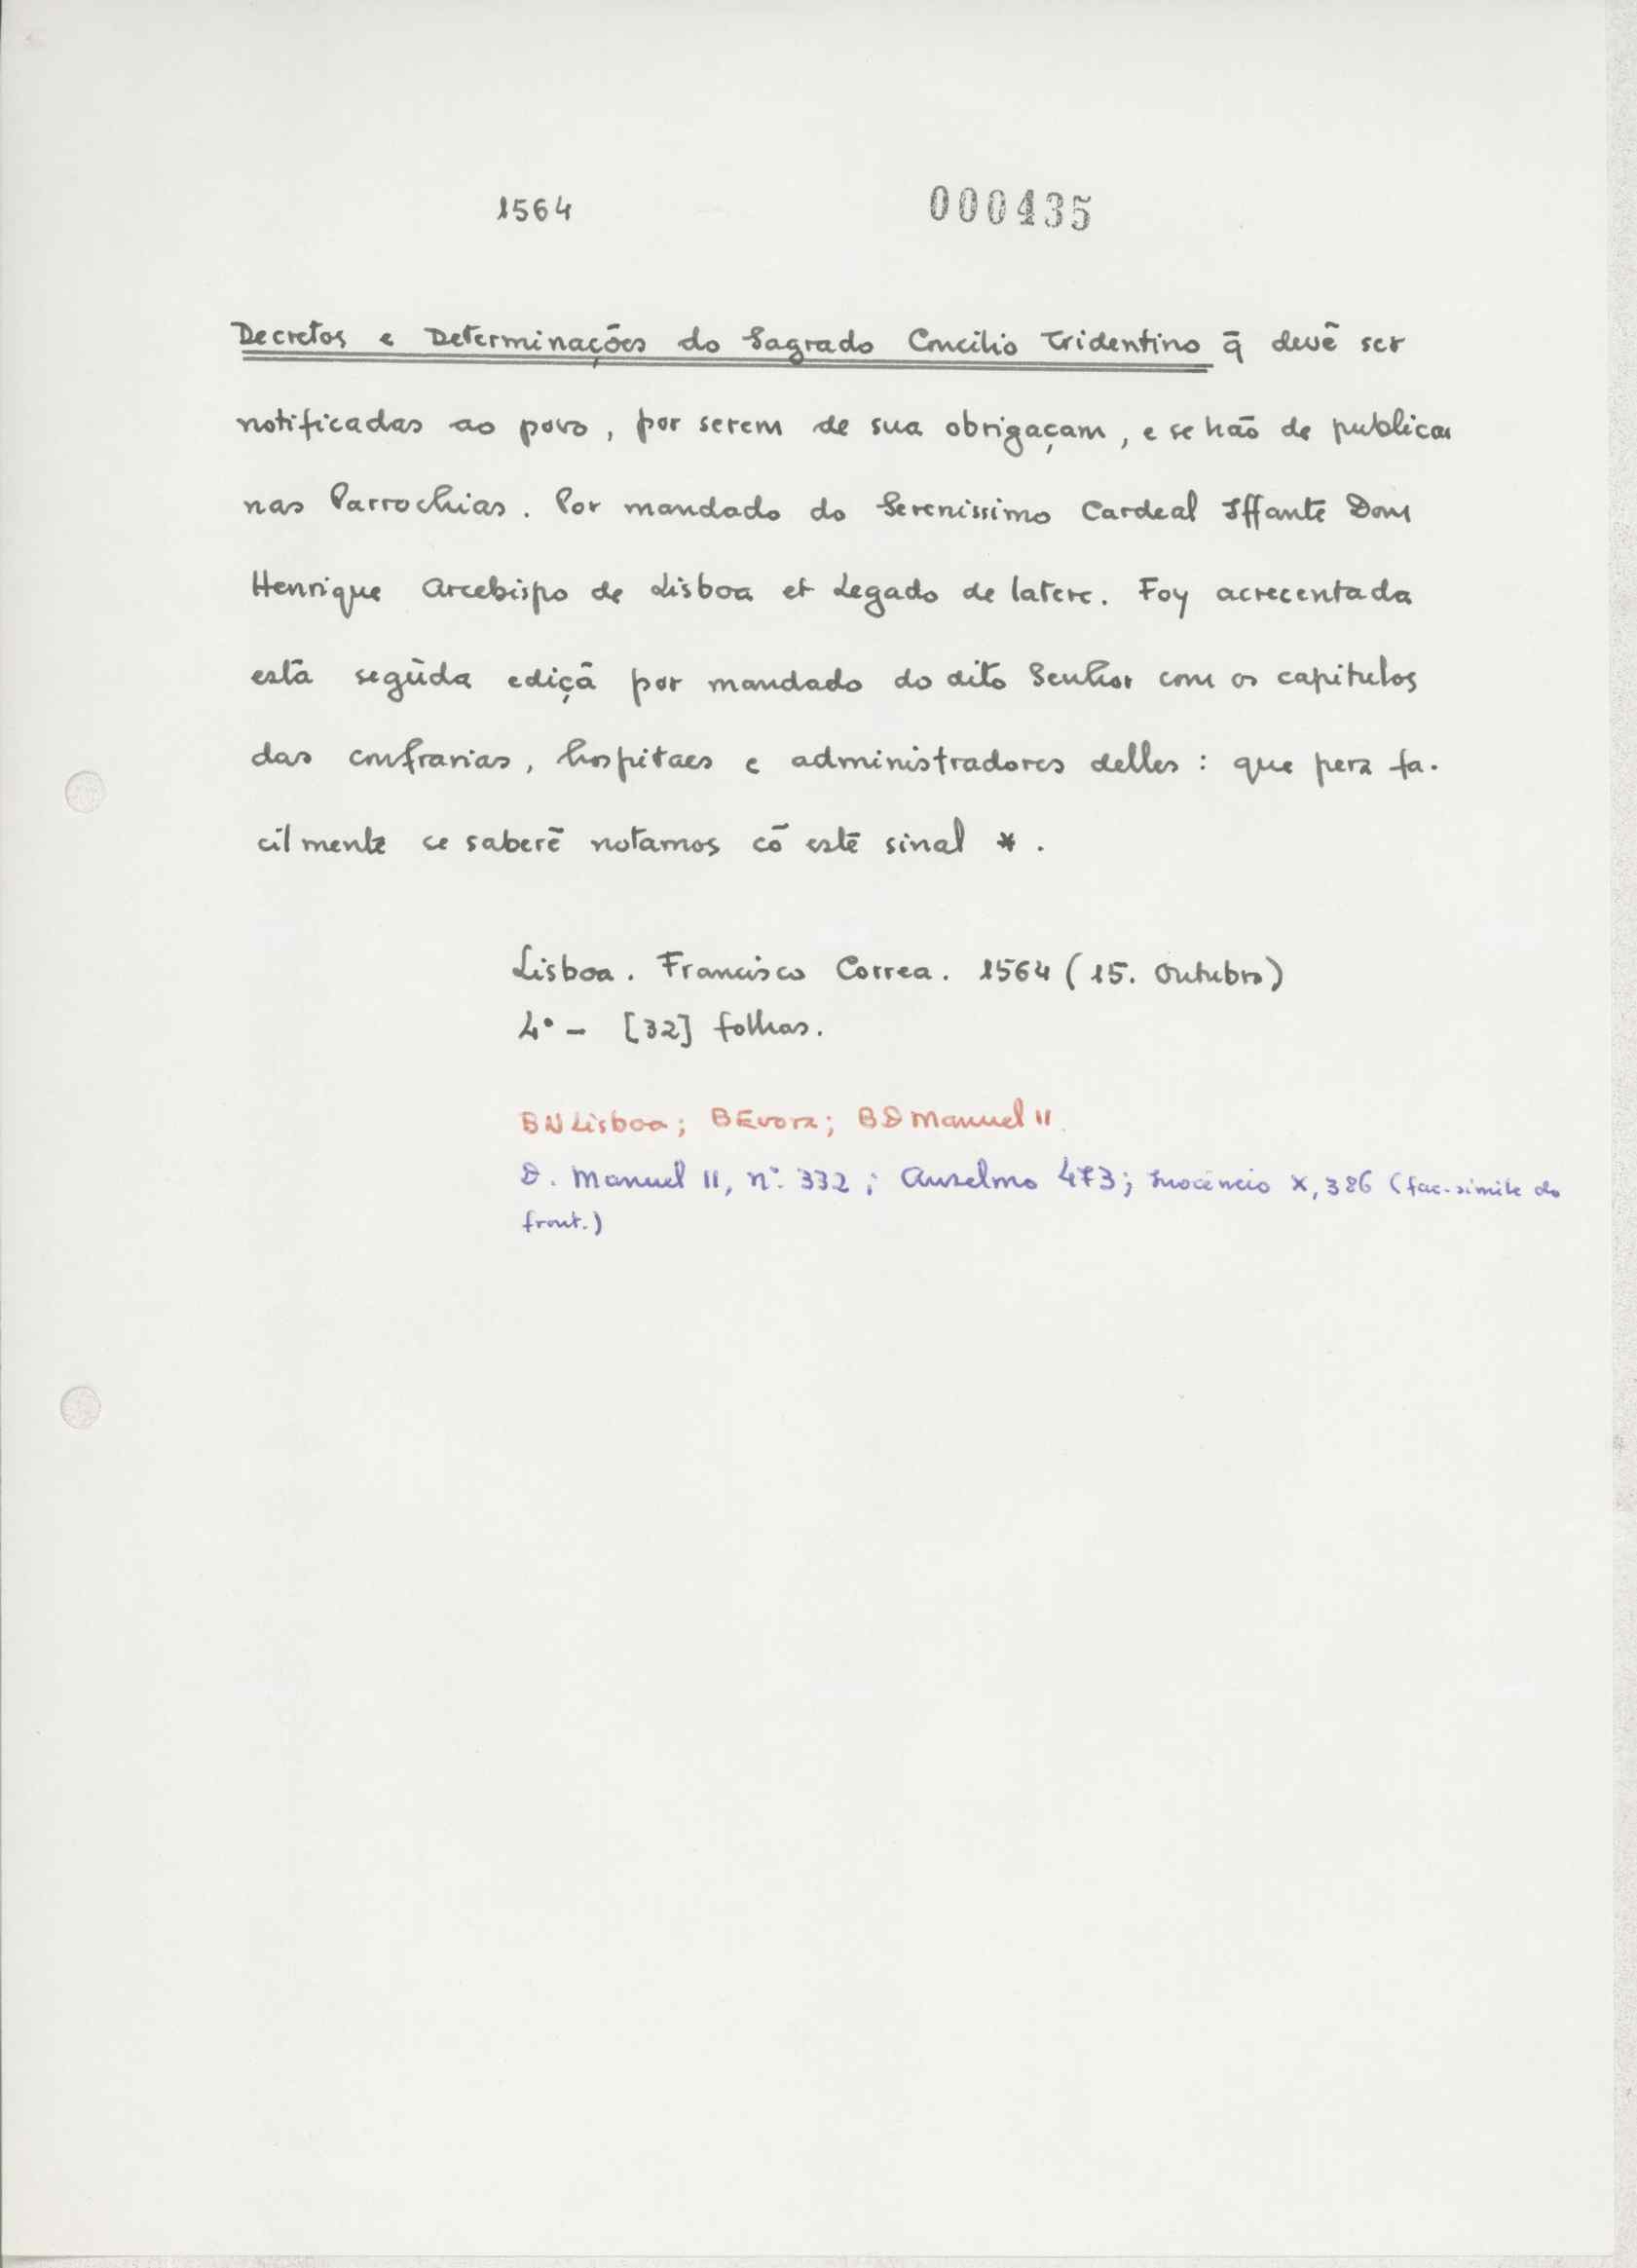 1564 000435
Decretos e Determinações do Sagrado Concilio Tridentino q̃ devẽ ser
notificadas ao povo, por serem de sua obrigaçam, e se hão de publicar
nas Parrochias. Por mandado do Serenissimo Cardeal Iffante Dom
Henrique Arcebispo de Lisboa et Legado de latere. Foy acrecentada
està segũda ediçã por mandado do dito Senhor com os capitulos
das confrarias, hospitaes e administradores delles: que pera fa-
cilmente se saberẽ notamos cõ este sinal *.
Lisboa. Francisco Correa. 1564 (15. Outubro)
4º - [32] folhas.
BNLisboa; BEvora; BDManuel II
D. Manuel II, nº. 332; Anselmo 473; Inocêncio X, 386 (fac-simile do
front.)